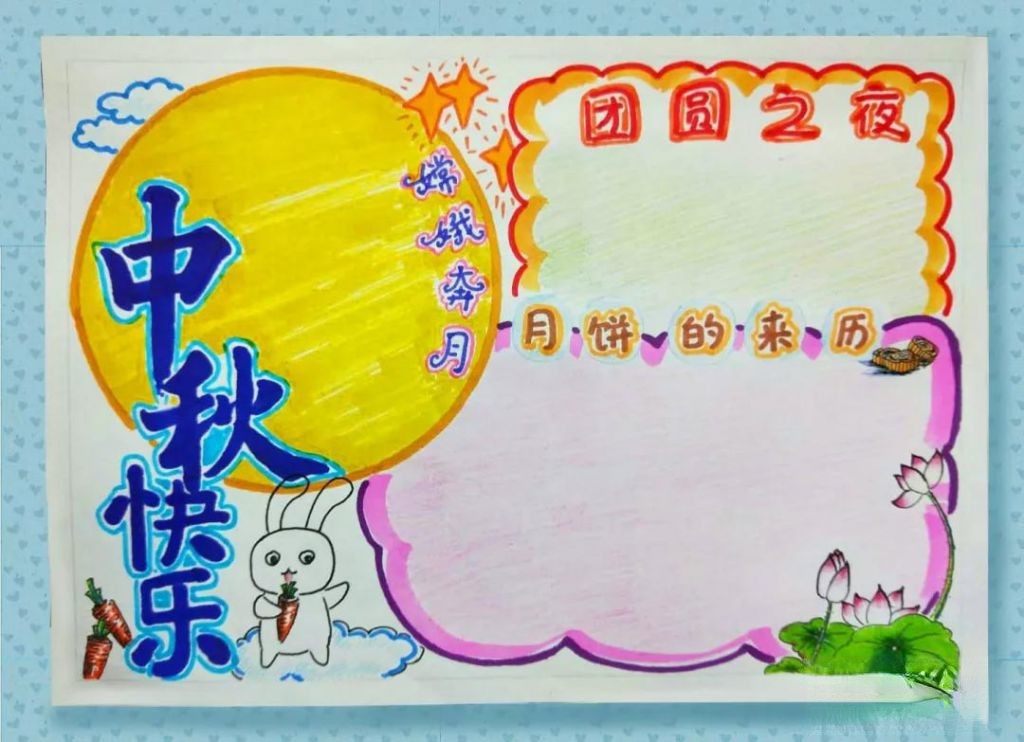 中秋快乐
嫦娥奔月
团圆之夜
月饼的来历